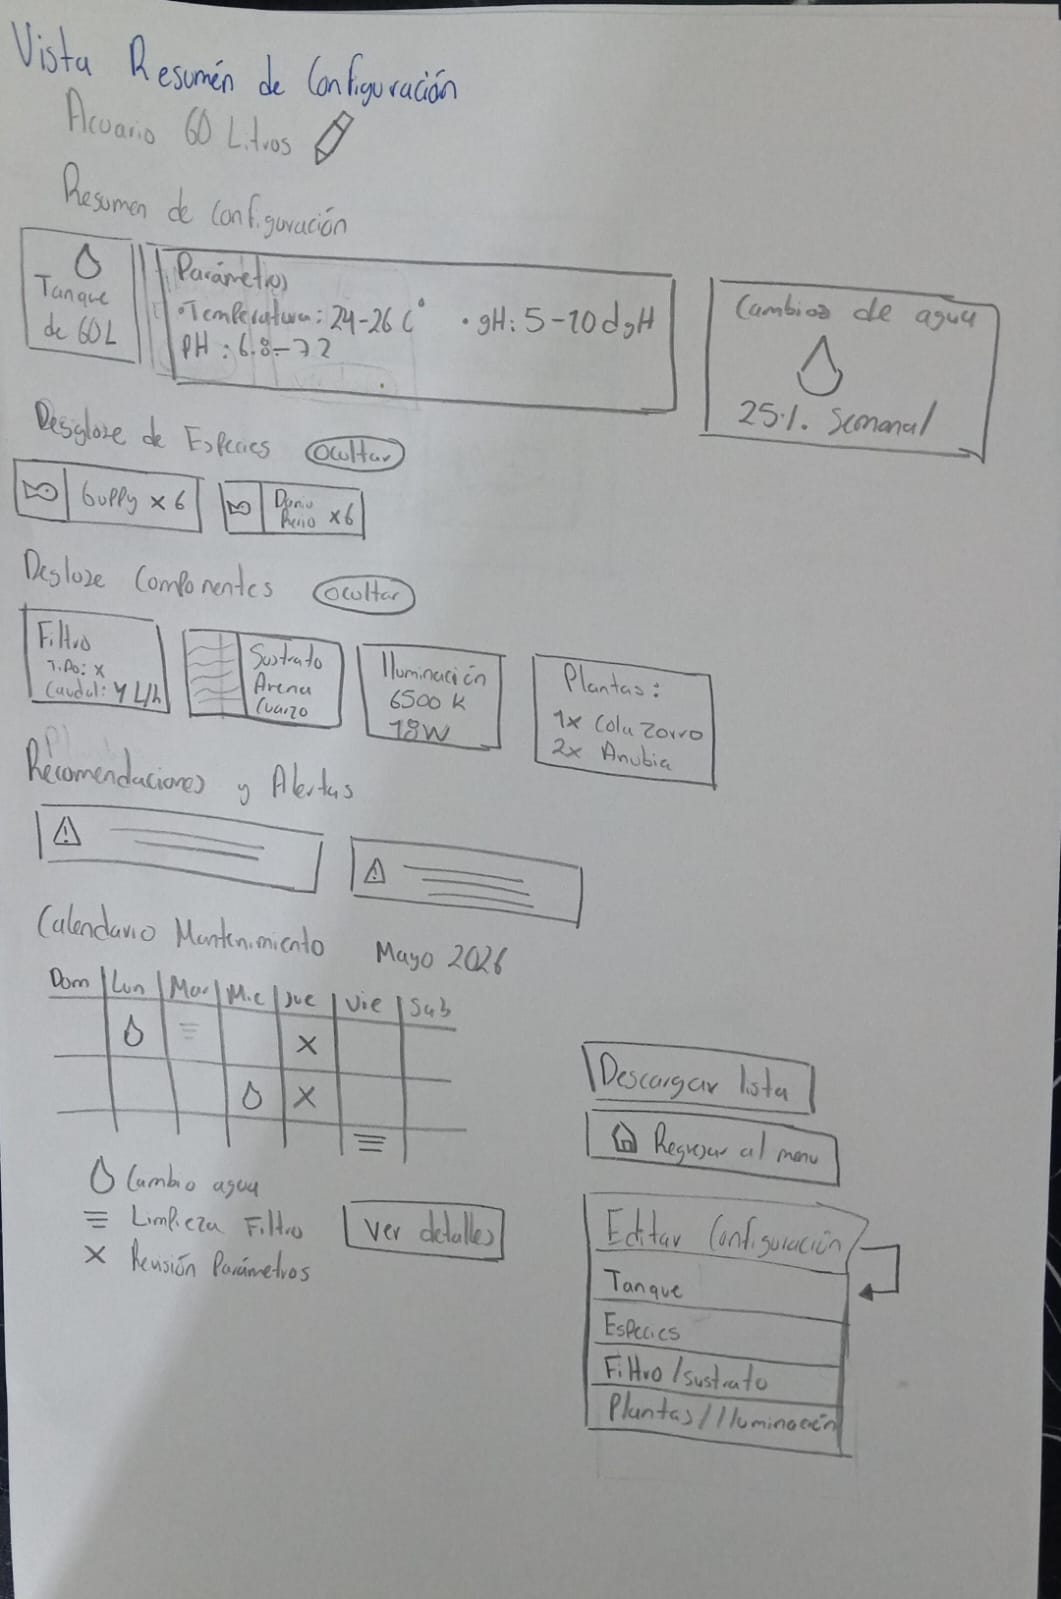 Vista Resumén de Configuración
Acuario 60 Litros
Resumen de configuración
Tanque
de 60L
Parámetros
•Temperatura: 24-26 C° •gH: 5-10 dgH
PH: 6.8-7.2
Cambios de agua
25%. Semanal
Desgloze de Especies ocultar
Guppy x 6
Danio
Reiio x6
Desloze Componentes ocultar
Filtro
Tipo: x
Caudal: y L/h
Sustrato
Arena
Cuarzo
Iluminación
6500 K
18W
Plantas:
1x Cola Zorro
2x Anubia
Recomendaciones y Alertas
Calendario Mantenimiento Mayo 2026
Dom Lun Mar Mie Jue Vie Sab
X
X
Cambio agua
Limpieza Filtro
X Revisión Parámetros
Ver detalles
Descargar lista
Regresar al menu
Editar Configuración
Tanque
Especies
Filtro/sustrato
Plantas/Iluminación